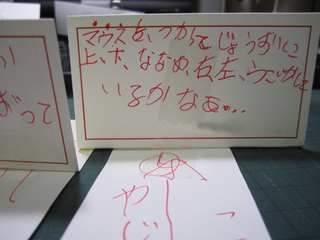 マウスを、つかって じょうずに
上、下、ななめ、右、左、うごかして
いるかなぁ…
って
やじ